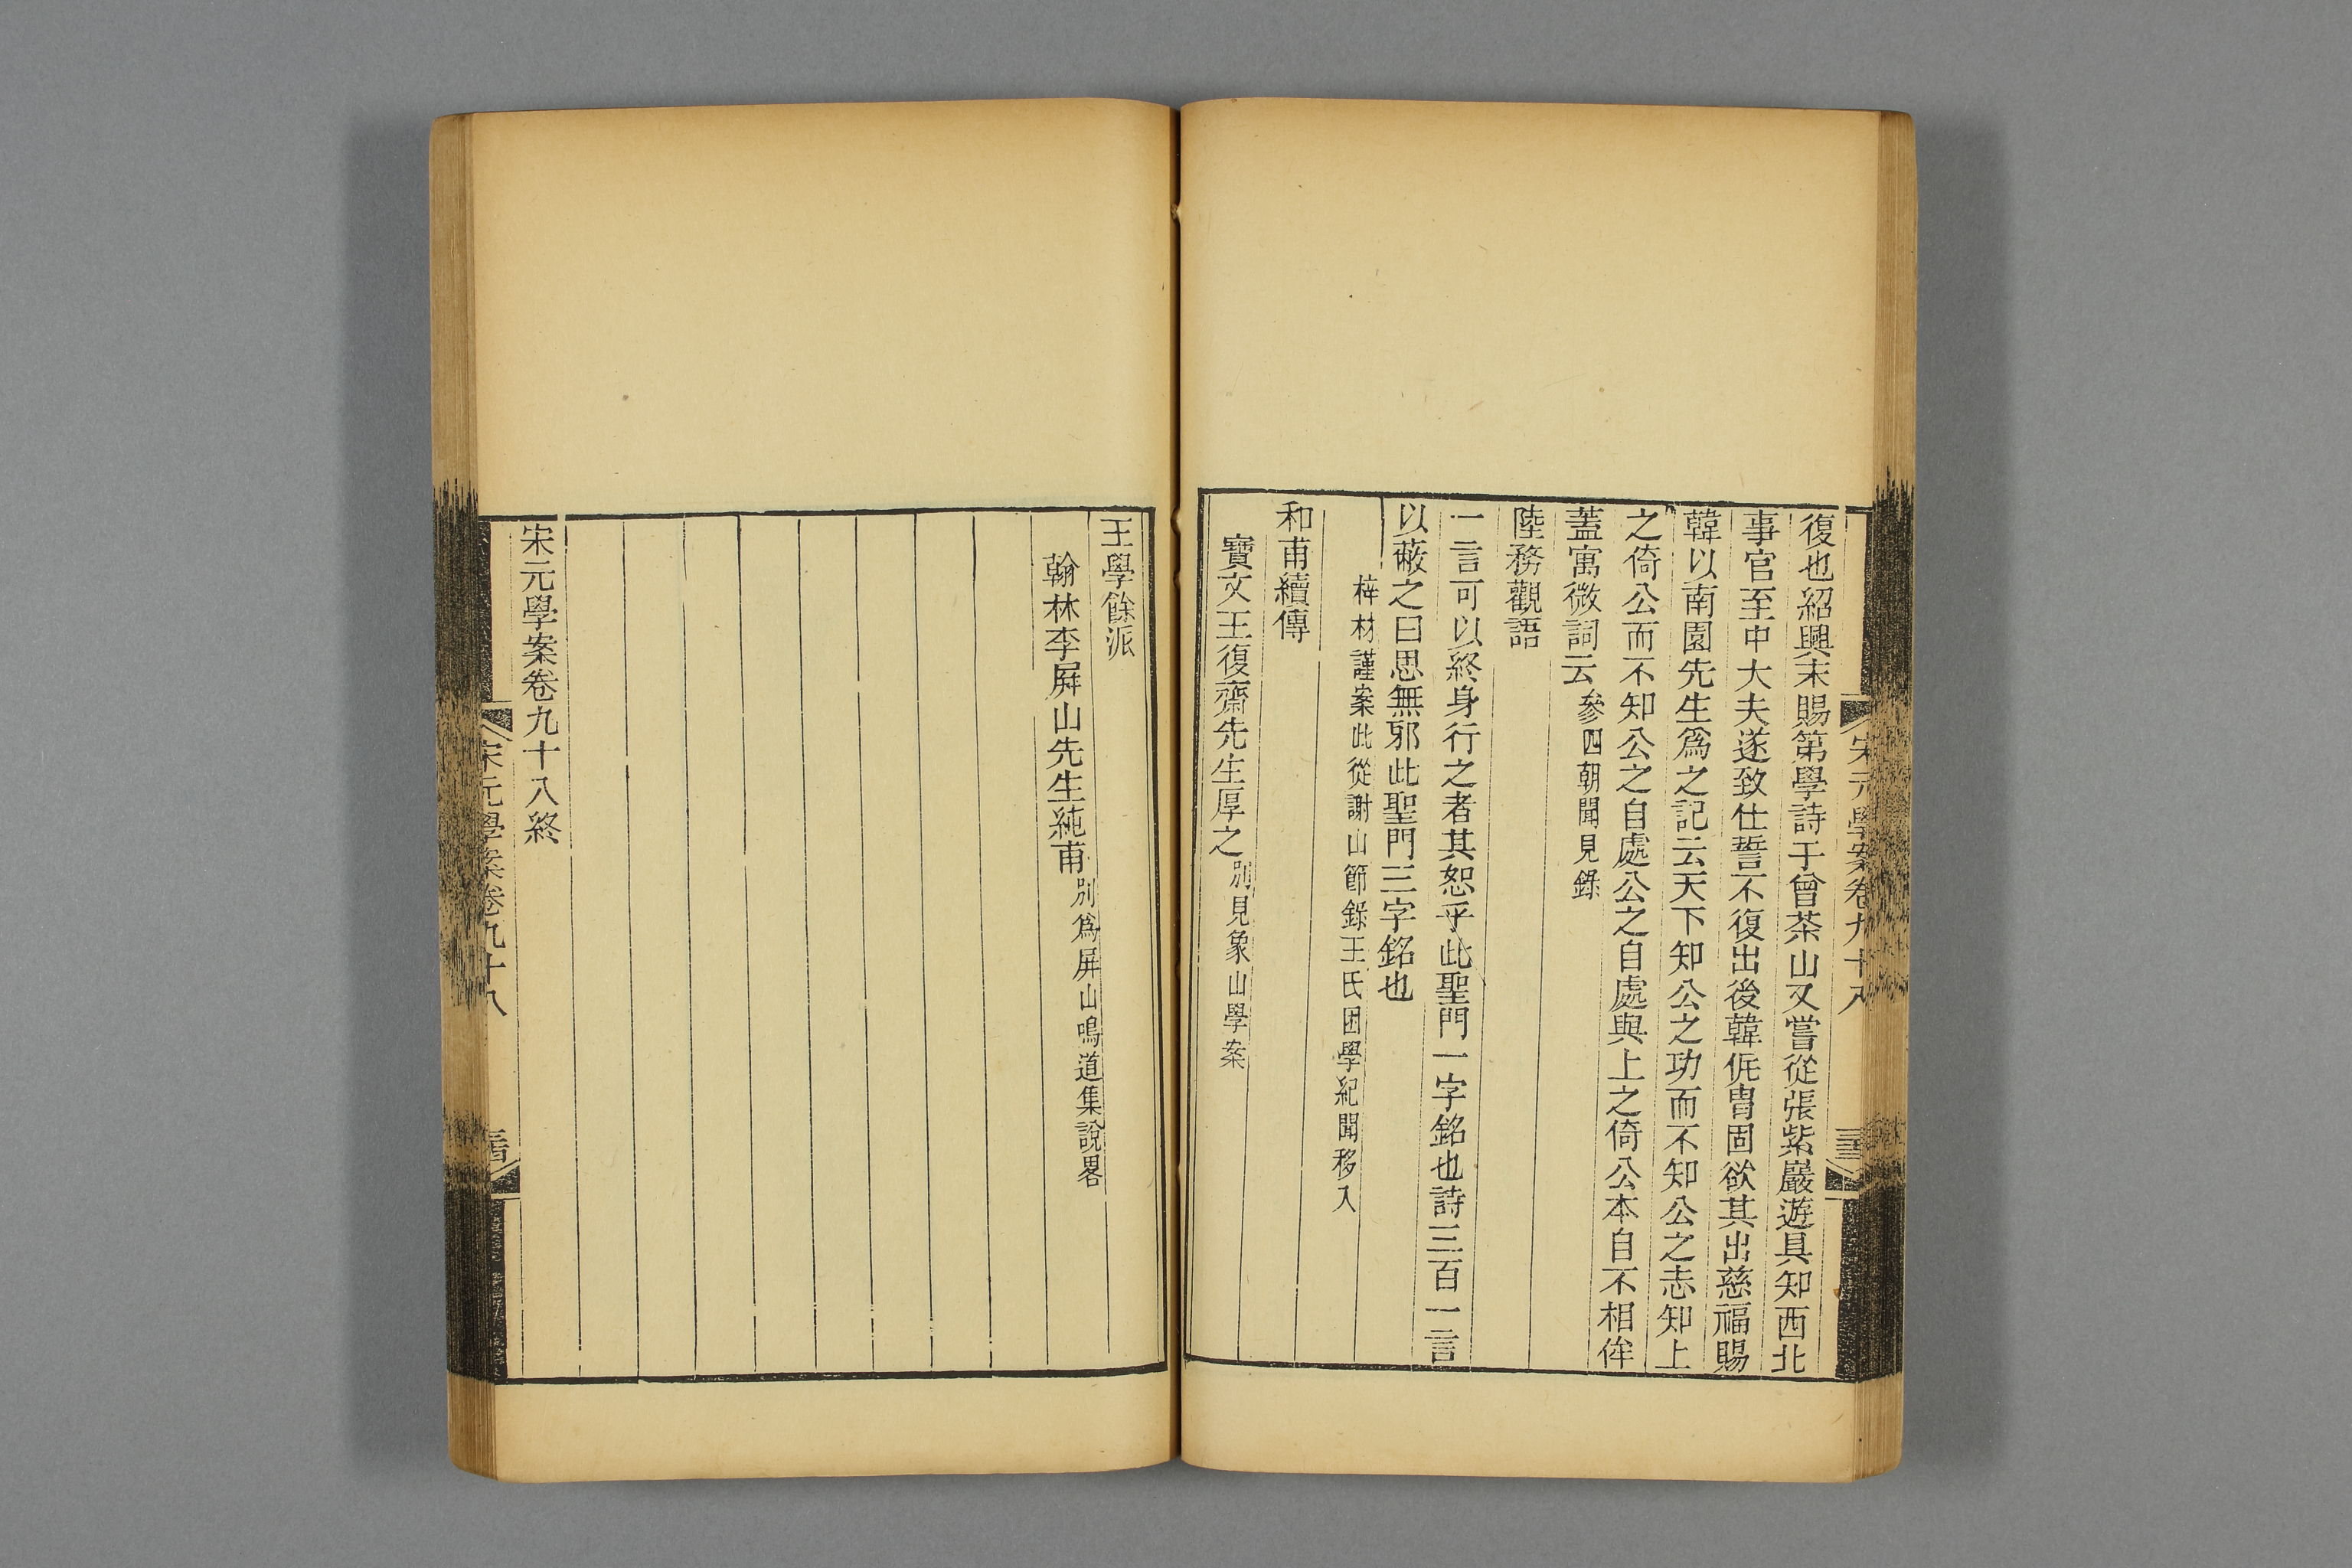 復也紹興末賜第學詩于曾茶山又嘗從張紫巖遊具知西北
事官至中大夫遂致仕誓不復出後韓侂冑固欲其出慈福賜
韓以南園先生爲之記云天下知公之功而不知公之志知上
之倚公而不知公之自處公之自處與上之倚公本自不相侔
蓋寓微詞云參四朝聞見錄
陸務觀語
一言可以終身行之者其恕乎此聖門一字銘也詩三百一言
以蔽之曰思無邪此聖門三字銘也
梓材謹案此從謝山節錄王氏困學紀聞移入
和甫續傳
寶文王復齋先生厚之別見象山學案
王學餘派
翰林李屛山先生純甫別爲屛山鳴道集說畧
宋元學案卷九十八終
宋元學案卷九十八
宋元學案卷九十八